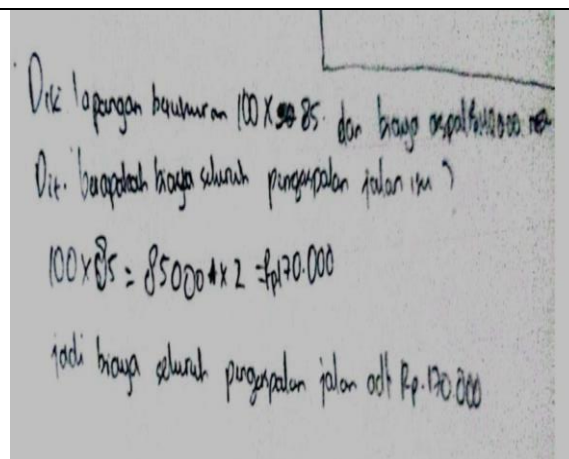 Dik: lapangan berukuran 100 X 85. dan biaya aspal
Dit. berapakah biaya seluruh pengaspalan jalan itu ?
100 x 85 = 85000 x 2 = Rp170.000
jadi biaya seluruh pengaspalan jalan adl Rp.170.000